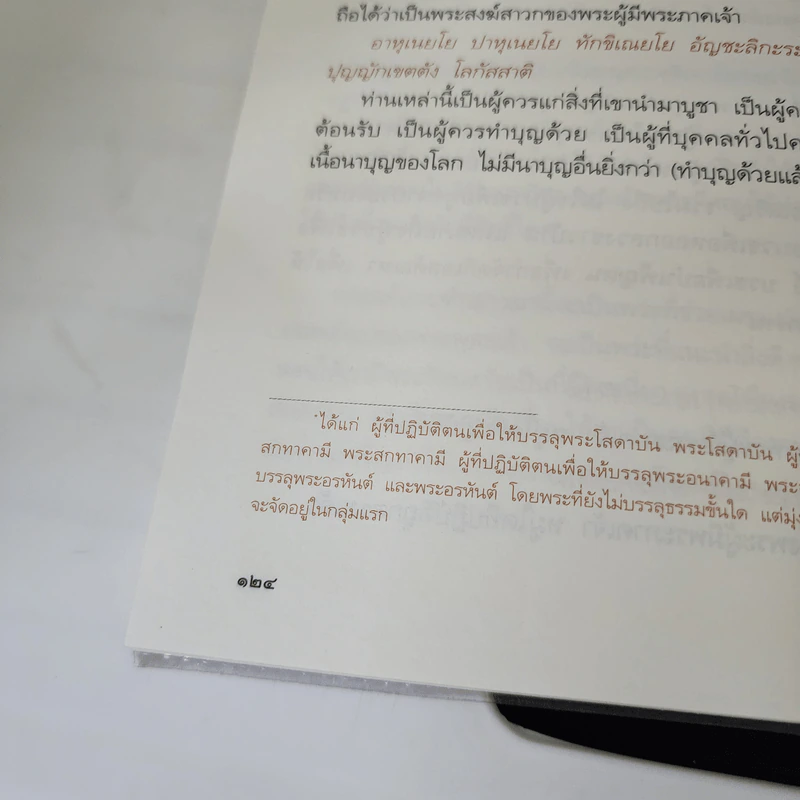 ถือได้ว่าเป็นพระสงฆ์สาวกของพระผู้มีพระภาคเจ้า
อาหุเนยโย ปาหุเนยโย ทักขิเณยโย อัญชะลิกะระ
ปุญญักเขตตัง โลกัสสาติ
ท่านเหล่านี้เป็นผู้ควรแก่สิ่งที่เขานำมาบูชา เป็นผู้ค
ต้อนรับ เป็นผู้ควรทำบุญด้วย เป็นผู้ที่บุคคลทั่วไปค
เนื้อนาบุญของโลก ไม่มีนาบุญอื่นยิ่งกว่า (ทำบุญด้วยแล้
ได้แก่ ผู้ที่ปฏิบัติตนเพื่อให้บรรลุพระโสดาบัน พระโสดาบัน ผู้
สกทาคามี พระสกทาคามี ผู้ที่ปฏิบัติตนเพื่อให้บรรลุพระอนาคามี พระ
บรรลุพระอรหันต์ และพระอรหันต์ โดยพระที่ยังไม่บรรลุธรรมขั้นใด แต่มุ่ง
จะจัดอยู่ในกลุ่มแรก
๑๒๔